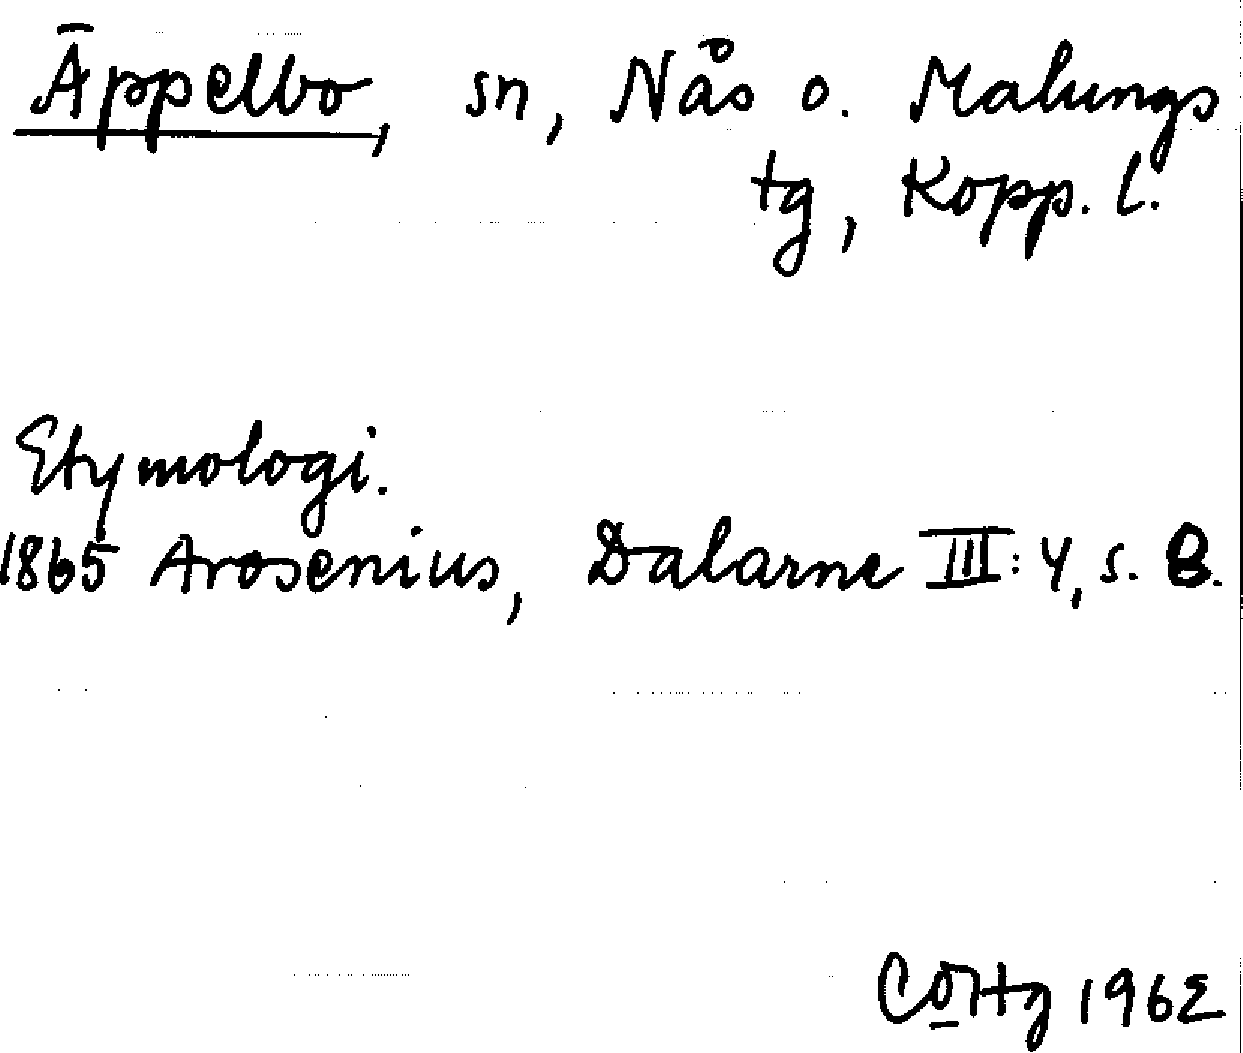 Äppelbo, sn, Nås o. Malungs
tg, Kopp. l.
Etymologi.
1865 Arosenius, Dalarne III: 4, s. 8.
1962